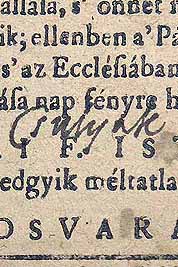 allala, s' onnet f
ik; ellenben a' Pá
s' az Ecclésiában
ása nap fényre h
I F. I S T
edgyik méltatla
O S V A R Á